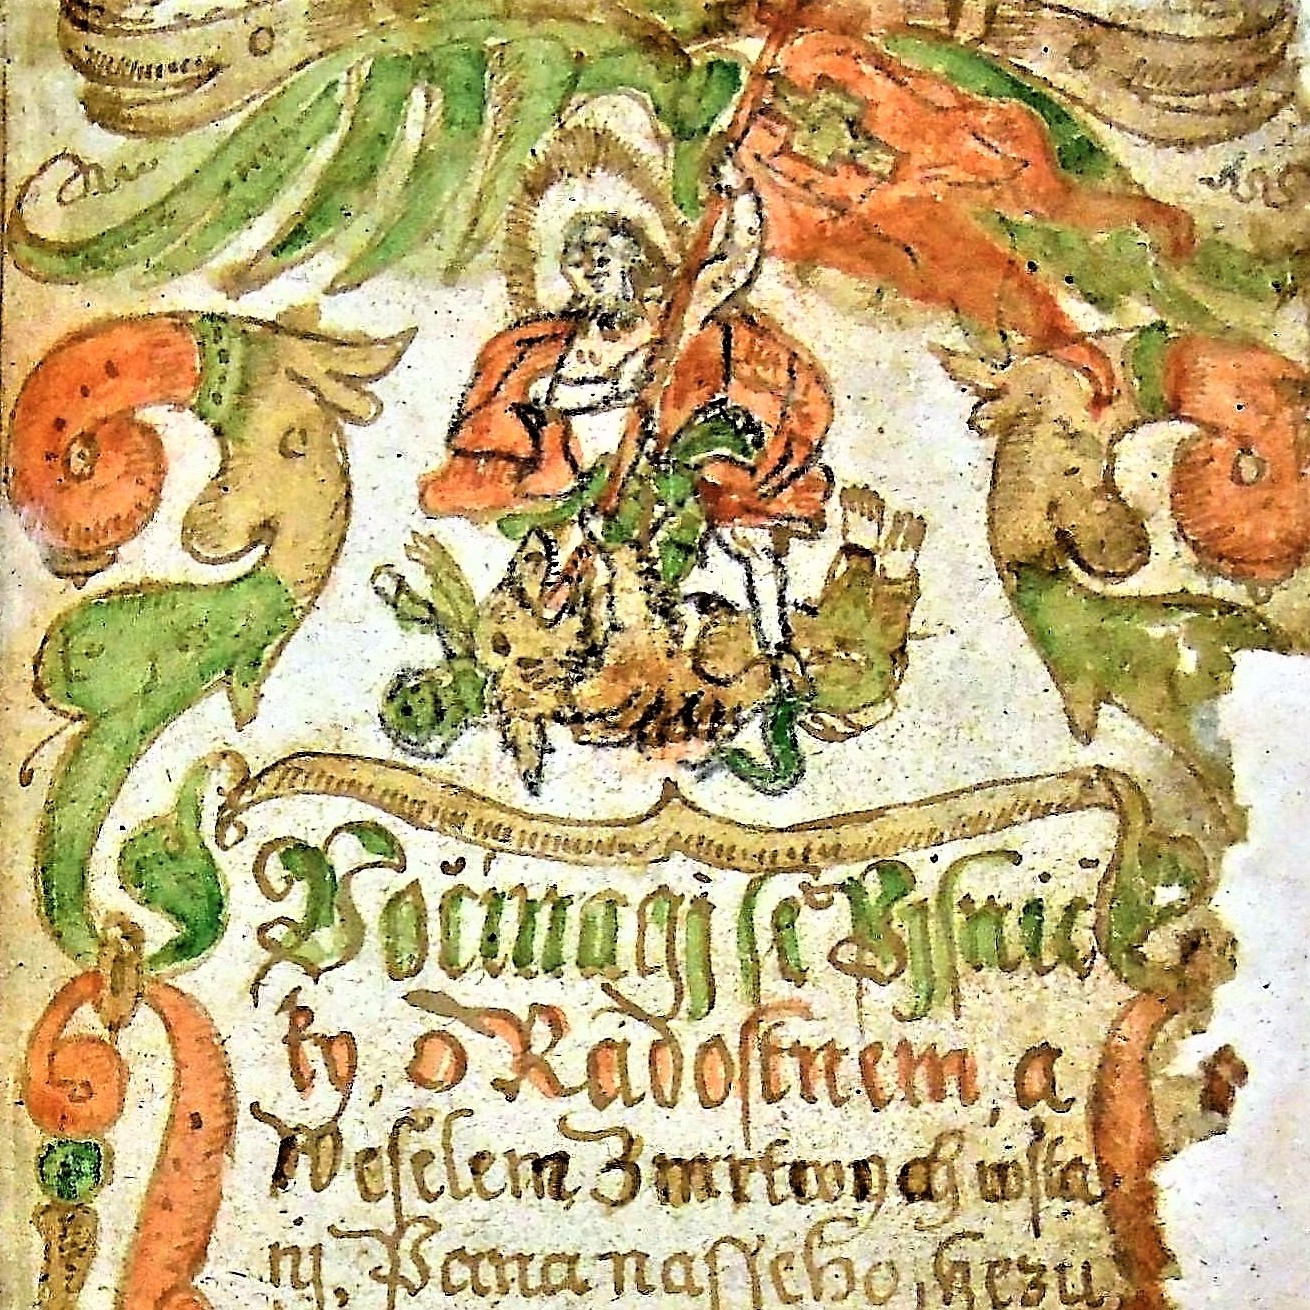 Počinagi se Pisnič
ky, o Radostnem, a
Weselem, Zmrtwych wsta
nj, Pana nasseho, Gezu